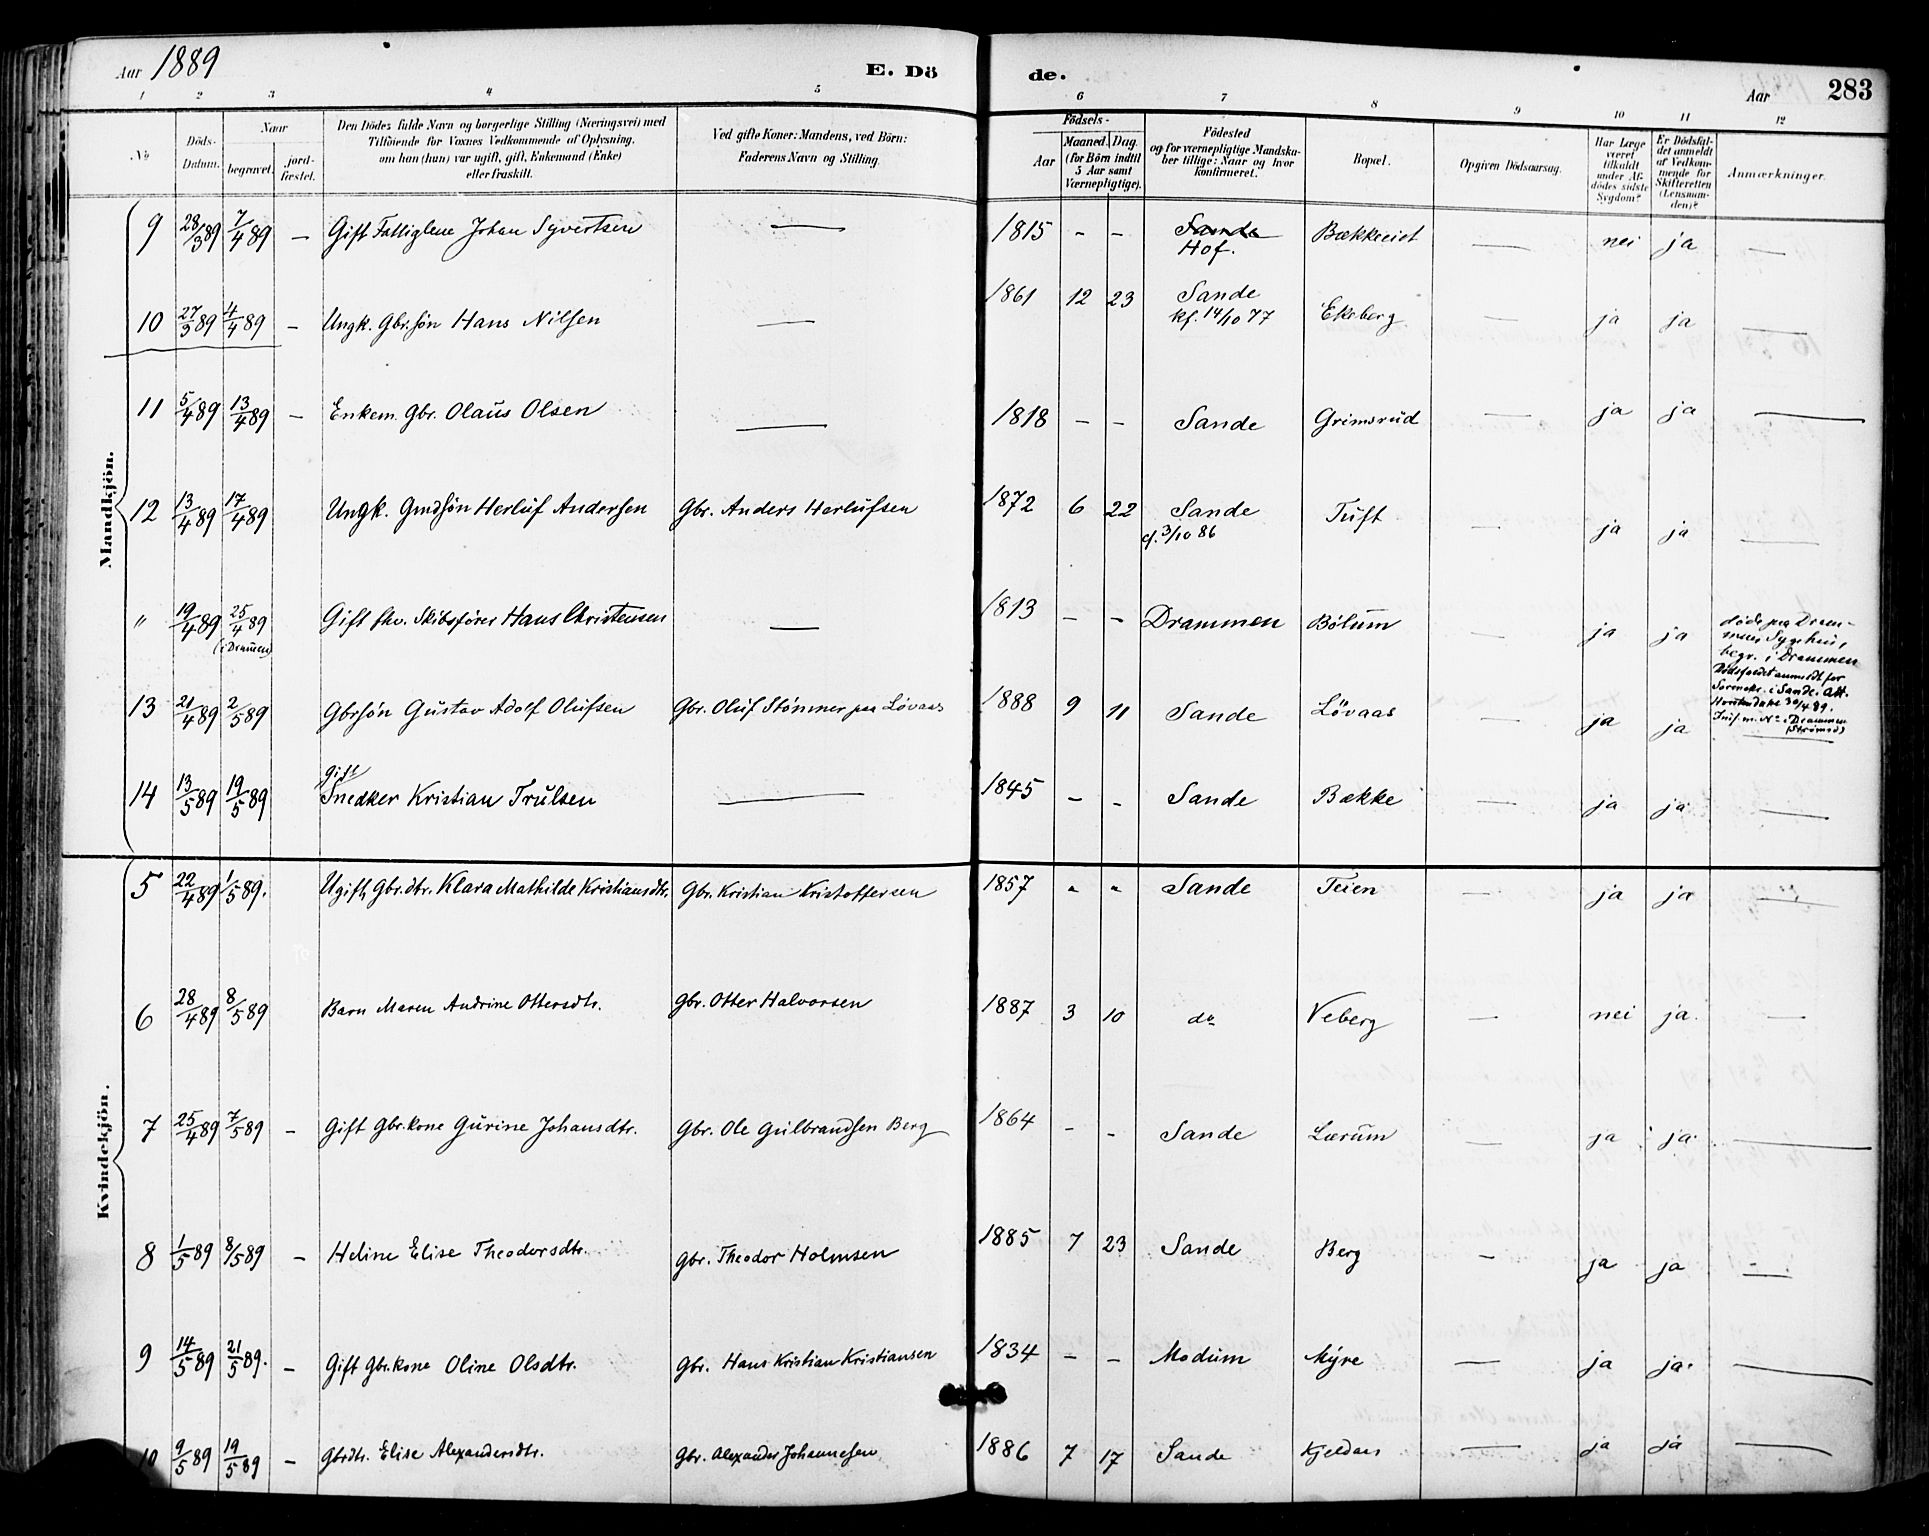 Aar 1889 E. Dö de. Aar 283
1 2 3 4 5 6 7 8 9 10 11 12
No
Döds-Datum.
Naar
begravet.
jord-fæstet.
Den Dödes fulde Navn og borgerlige Stilling (Næringsvei) med
Tilföiende for Voxnes Vedkommende af Oplysning,
om han (hun) var ugift, gift, Enkemand (Enke)
eller fraskilt.
Ved gifte Koner: Mandens, ved Börn:
Faderens Navn og Stilling.
Födsels-
Aar
Maaned. Dag.
(for Börn indtil
5 Aar samt
Værnepligtige).
Födested
og for værnepligtige Mandska-
ber tillige: Naar og hvor
konfirmeret.
Bopæl.
Opgiven Dödsaarsag.
Har Læge
været
tilkaldt
under Af-
dödes sidste
Sygdom?
Er Dödsfal-
det anmeldt
af Vedkom-
mende for
Skifteretten
(Lensman-
den)?
Anmærkninger.
Mandkjön.
9 28/3 89 7/4 89 — Gift Fattiglem Johan Syvertsen — 1815 - - Sande Hof. Bækkeeiet — nei ja —
10 27/3 89 4/4 89 — Ungk. Gbr.søn Hans Nilsen — 1861 12 23 Sande kf. 14/10 77 Ekeberg ja ja —
11 5/4 89 13/4 89 — Enkem. Gbr. Olaus Olsen — 1818 - - Sande Grimsrud — ja ja —
12 13/4 89 17/4 89 Ungk. Gmdsøn Herluf Andersen Gbr. Anders Herlufsen 1872 6 22 Sande cf. 3/10 86 Tuft — ja ja —
" 19/4 89 25/4 89 (i Drammen) Gift fhv. Skibsfører Hans Christensen — 1813 - - Drammen Bølum — ja ja
døde paa Dram-
mens Sygehus,
begr. i Drammen
Dødsfaldet anmeldt for
Sorenskr. i Sande. Att.
30/4 89.
13 21/4 89 2/5 89 Gbrsøn Gustav Adolf Olufsen Gbr. Oluf Stømner paa Løvaas 1888 9 11 Sande Løvaas ja ja —
14 13/5 89 19/5 89 gift Snedker Kristian Trulsen — 1845 - - Sande Bække — ja ja —
Kvindekjön.
5 22/4 89 1/5 89. Ugift Gbr.dtr. Klara Mathilde Kristiansdtr. Gbr. Kristian Kristoffersen 1857 " " Sande Teien ja ja —
6 28/4 89 8/5 89 Barn Maren Andrine Ottersdtr. Gbr. Otter Halvorsen 1887 3 10 do Veberg — nei ja. —
7 25/4 89 7/5 89 — Gift Gbr.kone Gurine Johansdtr. Gbr. Ole Gulbrandsen Berg 1864 - - Sande Lærum — ja ja. —
8 1/5 89 8/5 89 — Heline Elise Theodorsdtr. Gbr. Theodor Holmsen 1885 7 23 Sande Berg — ja ja —
9 14/5 89 21/5 89. — Gift Gbr.kone Oline Olsdtr. Gbr. Hans Kristian Kristiansen 1834 - - Modum Myre — ja ja. —
10 9/5 89 19/5 89 — Gbrdtr. Elise Alexandersdtr. Gbr. Alexander Johannesen 1886 7 17 Sande Kjeldaas — ja ja —